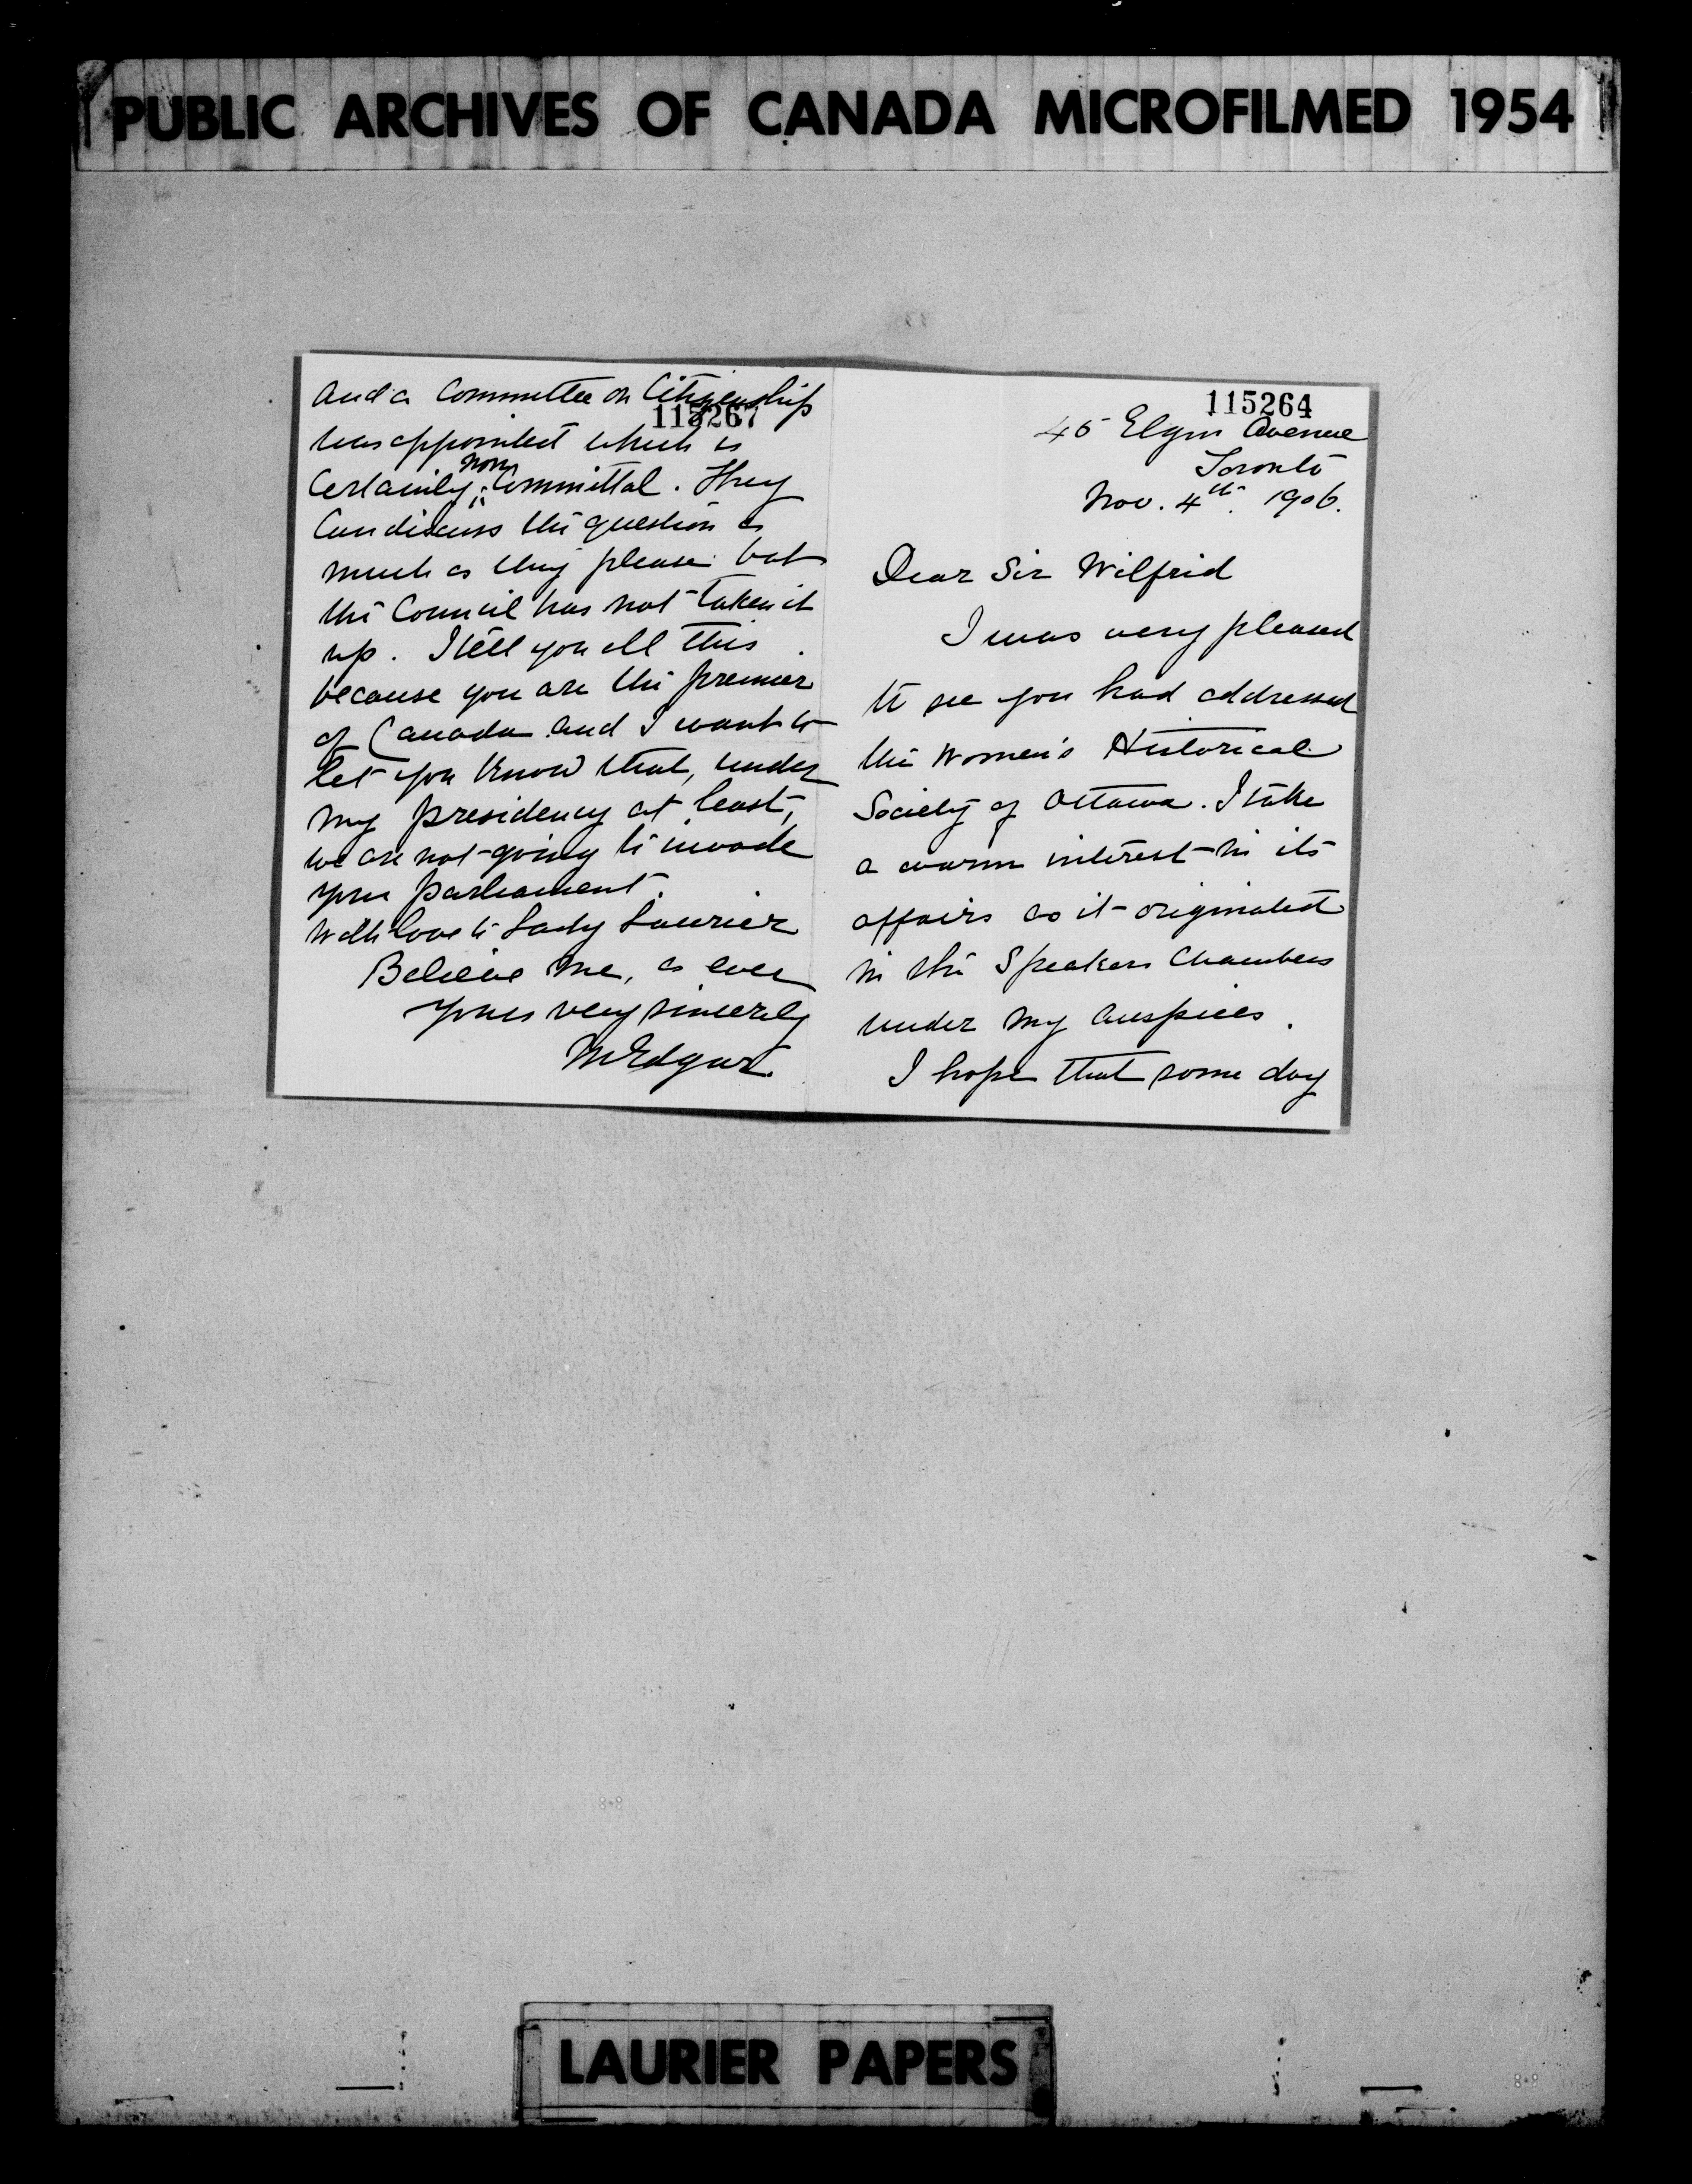 PUBLIC ARCHIVES OF CANADA MICROFILMED 1954
and a Committee on Citizenship
115267
was appointed which is
non
Certainly Committal. They
Can discuss the question as
much as they please but
the Council has not taken it
up. I tell you all this
because you are the premier
of Canada and I want to
let you know that, under
my presidency at least,
we are not going to invade
your Parliament.
With love to Lady Laurier
Believe me, as ever
Yours very sincerely
M Edgar
115264
45 Elgin Avenue
Toronto
Nov. 4th. 1906.
Dear Sir Wilfrid
I was very pleased
to see you had addressed
the Women's Historical
Society of Ottawa. I take
a warm interest in its
affairs as it originated
in the Speakers Chambers
under my auspices.
I hope that some day
LAURIER PAPERS